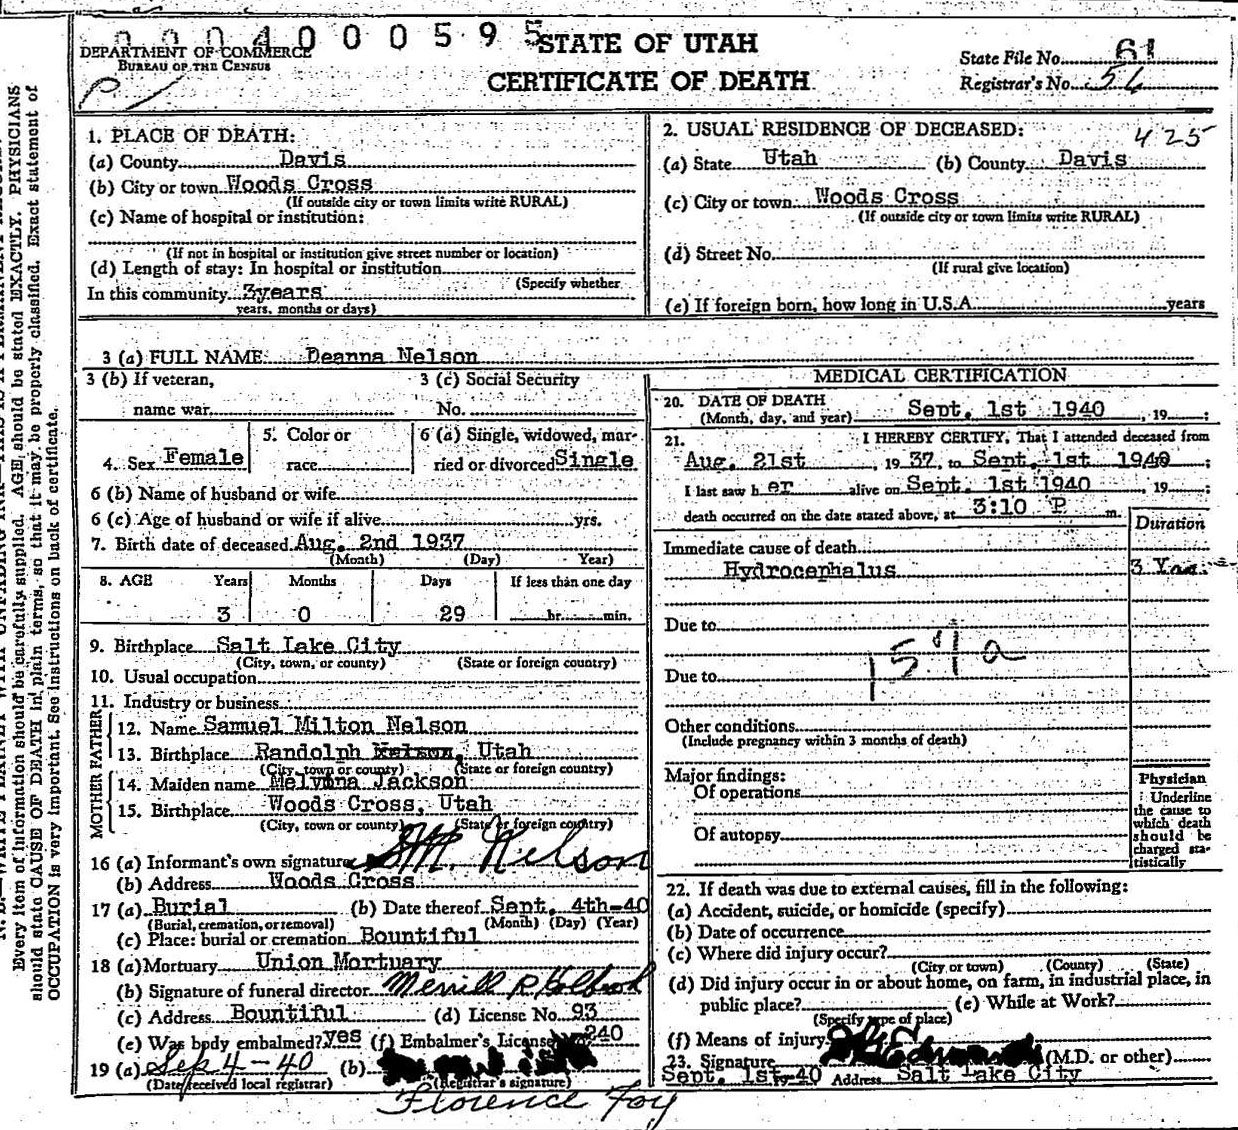 0 0 0 4 0 0 0 5 9 5
DEPARTMENT OF COMMERCE
BUREAU OF THE CENSUS
STATE OF UTAH
CERTIFICATE OF DEATH
State File No. 61
Registrar's No. 56
1. PLACE OF DEATH:
(a) County Davis
(b) City or town Woods Cross
(If outside city or town limits write RURAL)
(c) Name of hospital or institution:
(If not in hospital or institution give street number or location)
(d) Length of stay: In hospital or institution
(Specify whether
In this community 3years
years, months or days)
2. USUAL RESIDENCE OF DECEASED: 425
(a) State Utah (b) County Davis
(c) City or town Woods Cross
(If outside city or town limits write RURAL)
(d) Street No.
(If rural give location)
(e) If foreign born, how long in U.S.A. years
3 (a) FULL NAME Deanna Nelson
3 (b) If veteran, 3 (c) Social Security
name war No.
4. Sex Female 5. Color or race 6 (a) Single, widowed, married or divorced Single
6 (b) Name of husband or wife
6 (c) Age of husband or wife if alive yrs.
7. Birth date of deceased Aug. 2nd 1937
(Month) (Day) Year)
8. AGE Years Months Days If less than one day
3 0 29 hr. min.
9. Birthplace Salt Lake City
(City, town, or county) (State or foreign country)
10. Usual occupation
11. Industry or business
FATHER
12. Name Samuel Milton Nelson
13. Birthplace Randolph Nelson, Utah
(City, town or county) (State or foreign country)
MOTHER
14. Maiden name Melvina Jackson
15. Birthplace Woods Cross, Utah
(City, town or county) (State or foreign country)
16 (a) Informant's own signature S.M. Nelson
(b) Address Woods Cross
17 (a) Burial (b) Date thereof Sept. 4th-40
(Burial, cremation, or removal) (Month) (Day) (Year)
(c) Place: burial or cremation Bountiful
18 (a) Mortuary Union Mortuary
(b) Signature of funeral director Merrill R Holbrook
(c) Address Bountiful (d) License No. 93
(e) Was body embalmed? yes (f) Embalmer's License 240
19 (a) Sep 4-40 (b)
(Date received local registrar) (Registrar's signature)
Florence Foy
MEDICAL CERTIFICATION
20. DATE OF DEATH
(Month, day, and year) Sept. 1st 1940, 19 ;
21. I HEREBY CERTIFY, That I attended deceased from
Aug. 21st, 19 37, to Sept. 1st 1940 ;
I last saw h er alive on Sept. 1st 1940, 19 ;
death occurred on the date stated above, at 3:10 P. m.
Duration
Immediate cause of death
Hydrocephalus 3 Yrs.
Due to
157a
Due to
Other conditions
(Include pregnancy within 3 months of death)
Major findings:
Of operations
Of autopsy
Physician
Underline
the cause to
which death
should be
charged sta-
tistically
22. If death was due to external causes, fill in the following:
(a) Accident, suicide, or homicide (specify)
(b) Date of occurrence
(c) Where did injury occur?
(City or town) (County) (State)
(d) Did injury occur in or about home, on farm, in industrial place, in
public place? (e) While at Work?
(Specify type of place)
(f) Means of injury
23. Signature (M.D. or other)
Sept. 1st-40 Address Salt Lake City
Every item of information should be carefully supplied. AGE should be stated EXACTLY. PHYSICIANS
should state CAUSE OF DEATH in plain terms, so that it may be properly classified. Exact statement of
OCCUPATION is very important. See instructions on back of certificate.